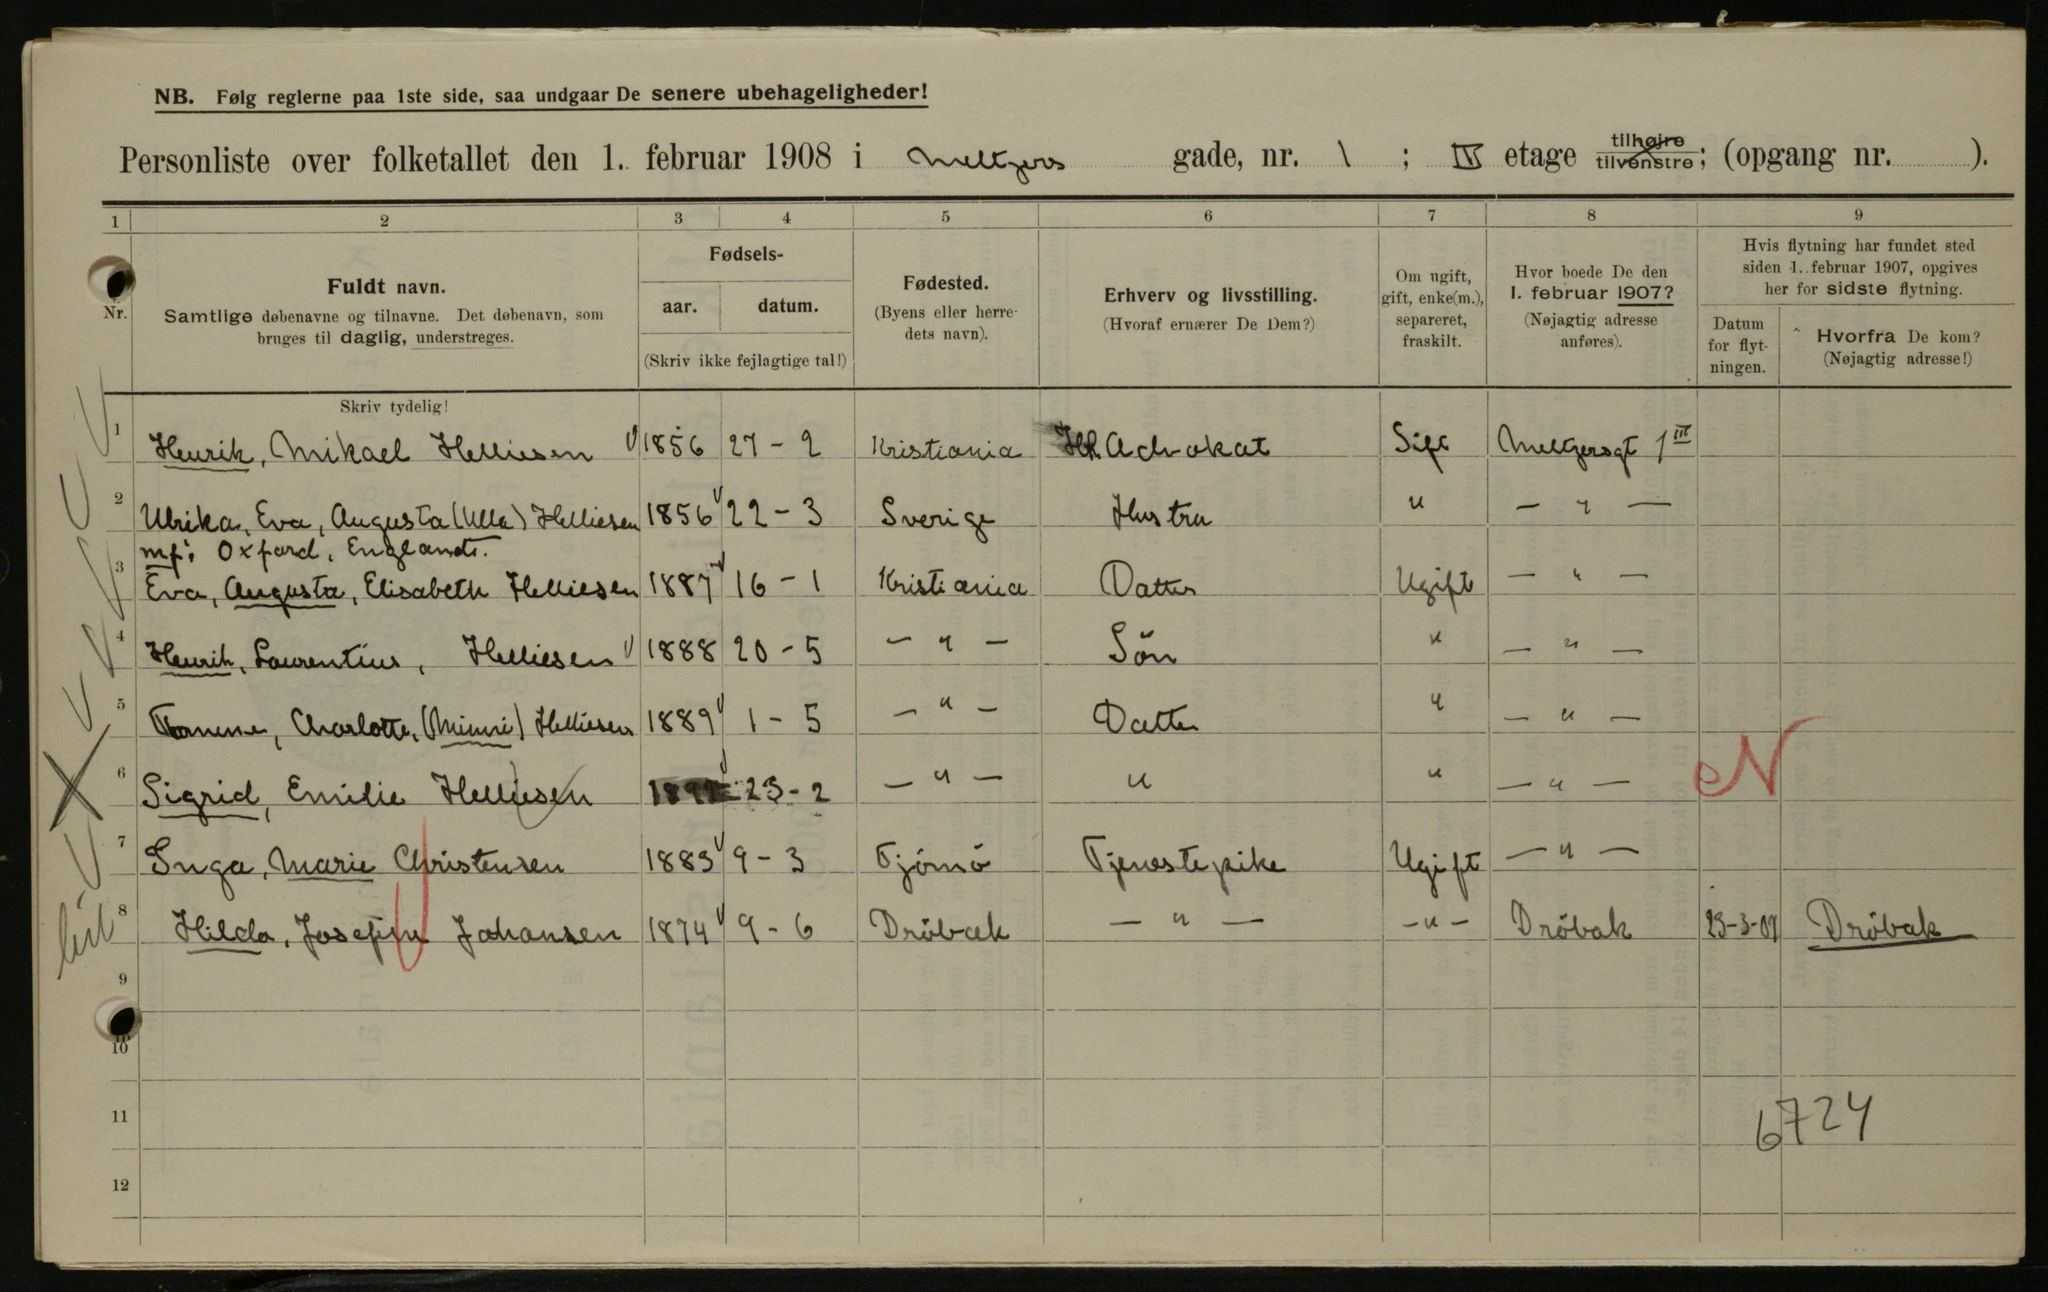 NB. Følg reglerne paa 1ste side, saa undgaar De senere ubehageligheder!
Personliste over folketallet den 1. februar 1908 i Meltzers gade, nr. 1 ; IV etage tilhøjre tilvenstre; (opgang nr. ).
1 2 3 4 5 6 7 8 9
Nr.
Fuldt navn.
Samtlige døbenavne og tilnavne. Det døbenavn, som
bruges til daglig, understreges.
Fødsels-
aar. datum.
(Skriv ikke fejlagtige tal!)
Fødested.
(Byens eller herre-
dets navn).
Erhverv og livsstilling.
(Hvoraf ernærer De Dem?)
Om ugift,
gift, enke(m.),
separeret,
fraskilt.
Hvor boede De den
1. februar 1907?
(Nøjagtig adresse
anføres).
Hvis flytning har fundet sted
siden 1. februar 1907, opgives
her for sidste flytning.
Datum
for flyt-
ningen.
Hvorfra De kom?
(Nøjagtig adresse!)
Skriv tydelig!
1 Henrik, Mikael Helliesen 1856 27 - 2 Kristiania Advokat Gift Meltzersgt 1 III
2 Ulrika, Eva, Augusta (Ulla) Helliesen 1856 22 - 3 Sverige Hustru " - " -
mf: Oxford, England.
3 Eva, Augusta, Elisabeth Helliesen 1887 16 - 1 Kristiania Datter Ugift - " -
4 Henrik, Laurentius, Helliesen 1888 20 - 5 - " - Sön " - " -
5 Charlotte, (Mimmi) Helliesen 1889 1 - 5 - " - Datter " - " -
6 Sigrid, Emilie Helliesen 23 - 2 - " - " " - " - N
7 Inga, Marie Christensen 1883 9 - 3 Tjömö Tjenestepike Ugift - " -
8 Hilda, Josefine Johansen 1874 9 - 6 Dröbak - " - - " - Dröbak 23-3-07 Dröbak
9
10
11
6724
12